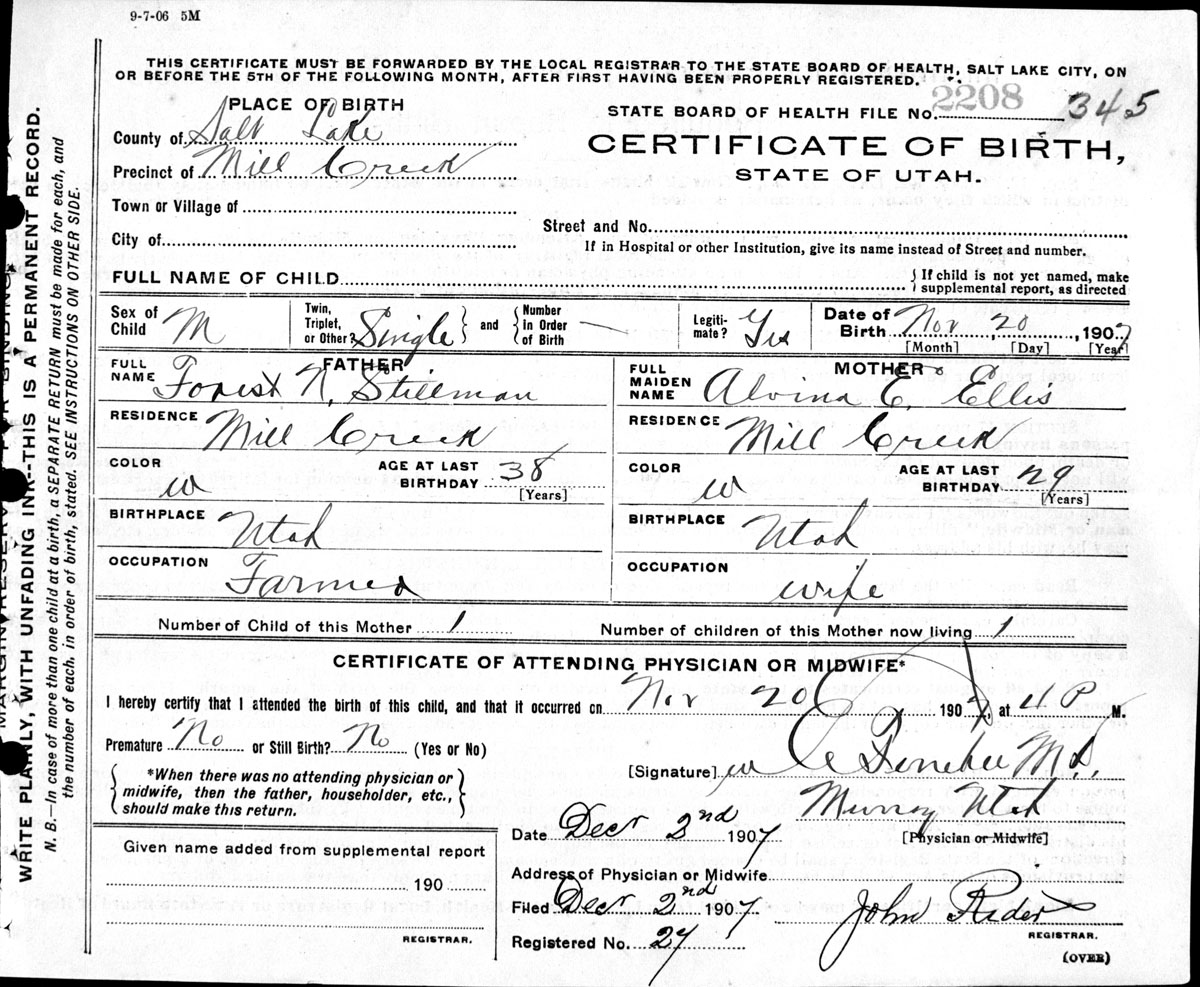 9-7-06 5M
THIS CERTIFICATE MUST BE FORWARDED BY THE LOCAL REGISTRAR TO THE STATE BOARD OF HEALTH, SALT LAKE CITY, ON
OR BEFORE THE 5TH OF THE FOLLOWING MONTH, AFTER FIRST HAVING BEEN PROPERLY REGISTERED.
PLACE OF BIRTH
STATE BOARD OF HEALTH FILE No. 2208 345
County of Salt Lake
CERTIFICATE OF BIRTH,
Precinct of Mill Creek
STATE OF UTAH.
Town or Village of
Street and No.
City of
If in Hospital or other Institution, give its name instead of Street and number.
FULL NAME OF CHILD
{ If child is not yet named, make
supplemental report, as directed
Sex of Child M
Twin, Triplet, or Other? Single } and { Number In Order of Birth —
Legiti-mate? Yes
Date of Birth Nov 20, 1907
[Month] [Day] [Year]
FATHER
FULL NAME Forest N. Stillman
RESIDENCE Mill Creek
COLOR w AGE AT LAST BIRTHDAY 38
[Years]
BIRTHPLACE Utah
OCCUPATION Farmer
MOTHER
FULL MAIDEN NAME Alvina E. Ellis
RESIDENCE Mill Creek
COLOR w AGE AT LAST BIRTHDAY 29
[Years]
BIRTHPLACE Utah
OCCUPATION wife
Number of Child of this Mother 1 Number of children of this Mother now living 1
CERTIFICATE OF ATTENDING PHYSICIAN OR MIDWIFE*
I hereby certify that I attended the birth of this child, and that it occurred on Nov 20 1907, at 4 P M.
Premature No or Still Birth? No (Yes or No)
{ *When there was no attending physician or
midwife, then the father, householder, etc.,
should make this return. }
[Signature] M.D.
Murray Utah
Date Decr 2nd 1907 [Physician or Midwife]
Given name added from supplemental report
190
REGISTRAR.
Address of Physician or Midwife
Filed Decr 2nd 1907 John Rider
REGISTRAR.
Registered No. 27
(OVER)
MARGIN RESERVED FOR BINDING
WRITE PLAINLY, WITH UNFADING INK--THIS IS A PERMANENT RECORD.
N. B.—In case of more than one child at a birth, a SEPARATE RETURN must be made for each, and
the number of each, in order of birth, stated. SEE INSTRUCTIONS ON OTHER SIDE.